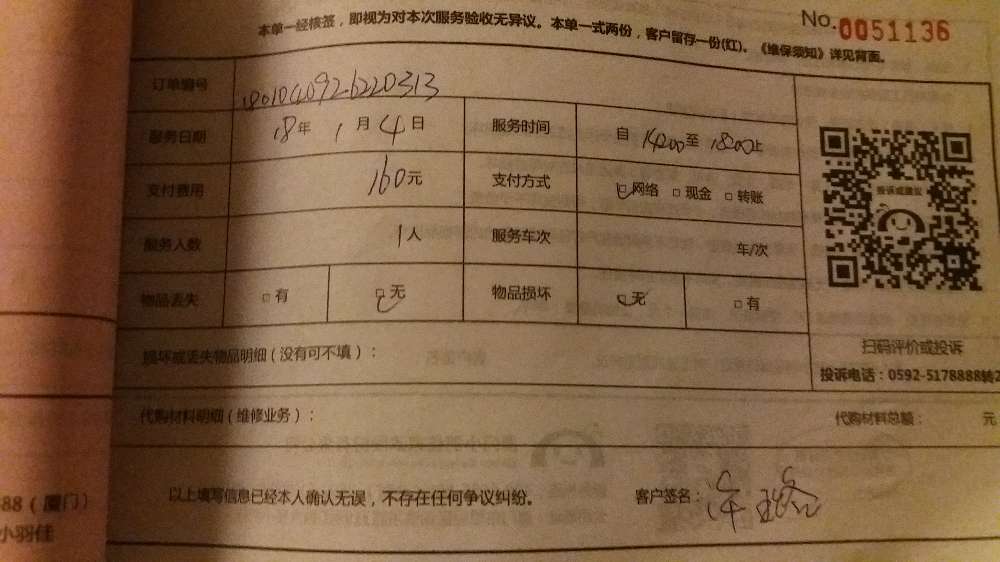 No.0051136
本单一经核签，即视为对本次服务验收无异议。本单一式两份，客户留存一份(红)。《维保须知》详见背面。
订单编号
服务日期 18年 1月 4日 服务时间 自 14:00 至 18:00 止
支付费用 160元 支付方式 □网络 □现金 □转账
服务人数 1人 服务车次 车/次
物品丢失 □有 □无 物品损坏 □无 □有
投诉或建议
扫码评价或投诉
投诉电话：0592-5178888转2
损坏或丢失物品明细（没有可不填）：
代购材料明细（维修业务）： 代购材料总额： 元
以上填写信息已经本人确认无误，不存在任何争议纠纷。 客户签名：
88（厦门）
小羽佳